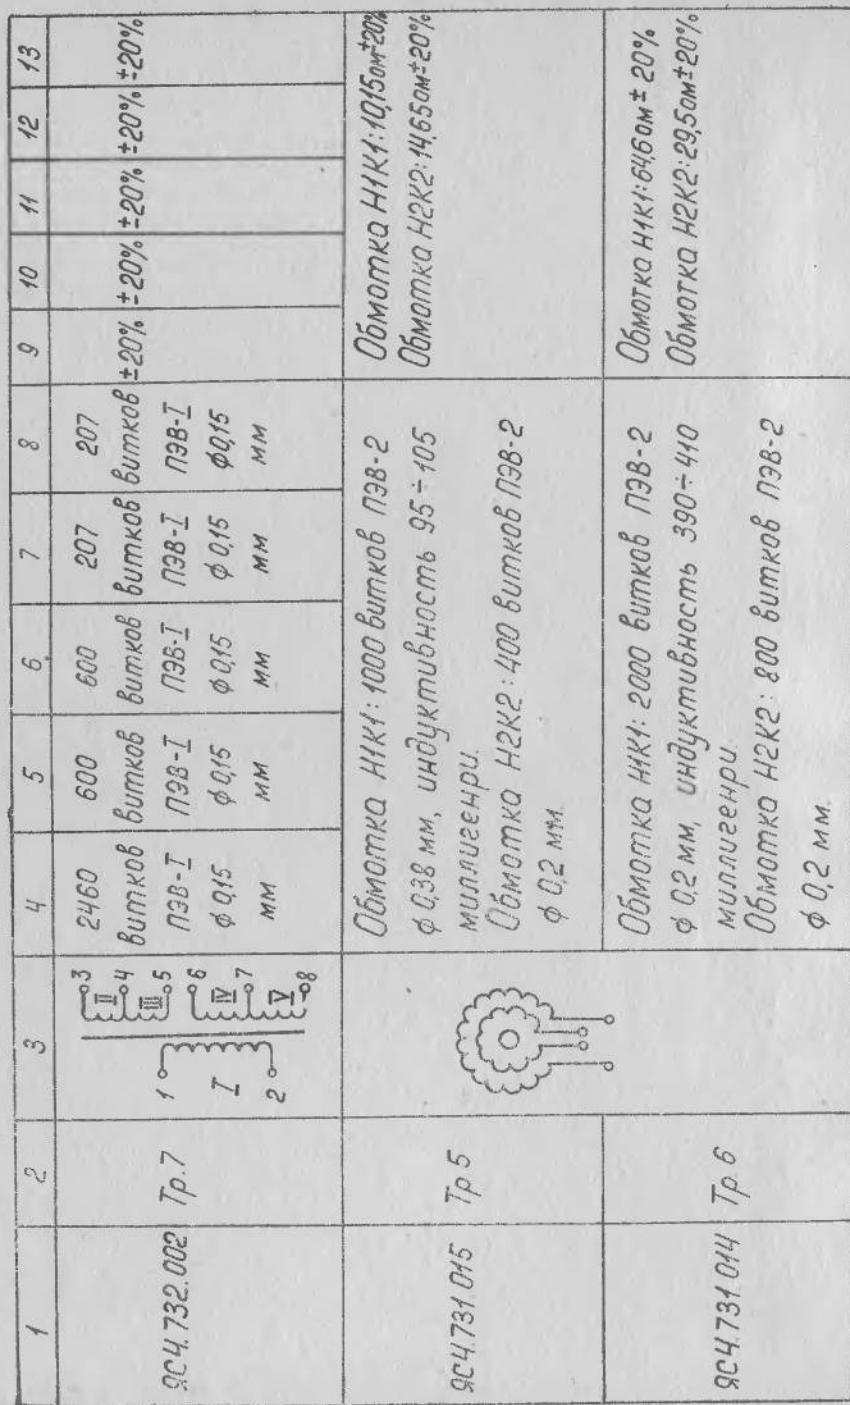 1 2 3 4 5 6 7 8 9 10 11 12 13
ЯС4.732.002
Тр.7
1
I
2
3
II
4
III
5
6
IV
7
V
8
2460
витков
ПЭВ-I
ϕ 0,15
мм
600
витков
ПЭВ-I
ϕ 0,15
мм
600
витков
ПЭВ-I
ϕ 0,15
мм
207
витков
ПЭВ-I
ϕ 0,15
мм
207
витков
ПЭВ-I
ϕ 0,15
мм
±20% ±20% ±20% ±20% ±20%
ЯС4.731.015
Тр 5
Обмотка Н1К1: 1000 витков ПЭВ-2
ϕ 0,38 мм, индуктивность 95÷105
миллигенри.
Обмотка Н2К2: 400 витков ПЭВ-2
ϕ 0,2 мм.
Обмотка Н1К1: 10,15 ом ±20%
Обмотка Н2К2: 14,65 ом ±20%
ЯС4.731.014
Тр.6
Обмотка Н1К1: 2000 витков ПЭВ-2
ϕ 0,2 мм, индуктивность 390÷410
миллигенри.
Обмотка Н2К2: 800 витков ПЭВ-2
ϕ 0,2 мм.
Обмотка Н1К1: 64,6 ом ± 20%
Обмотка Н2К2: 29,5 ом ± 20%